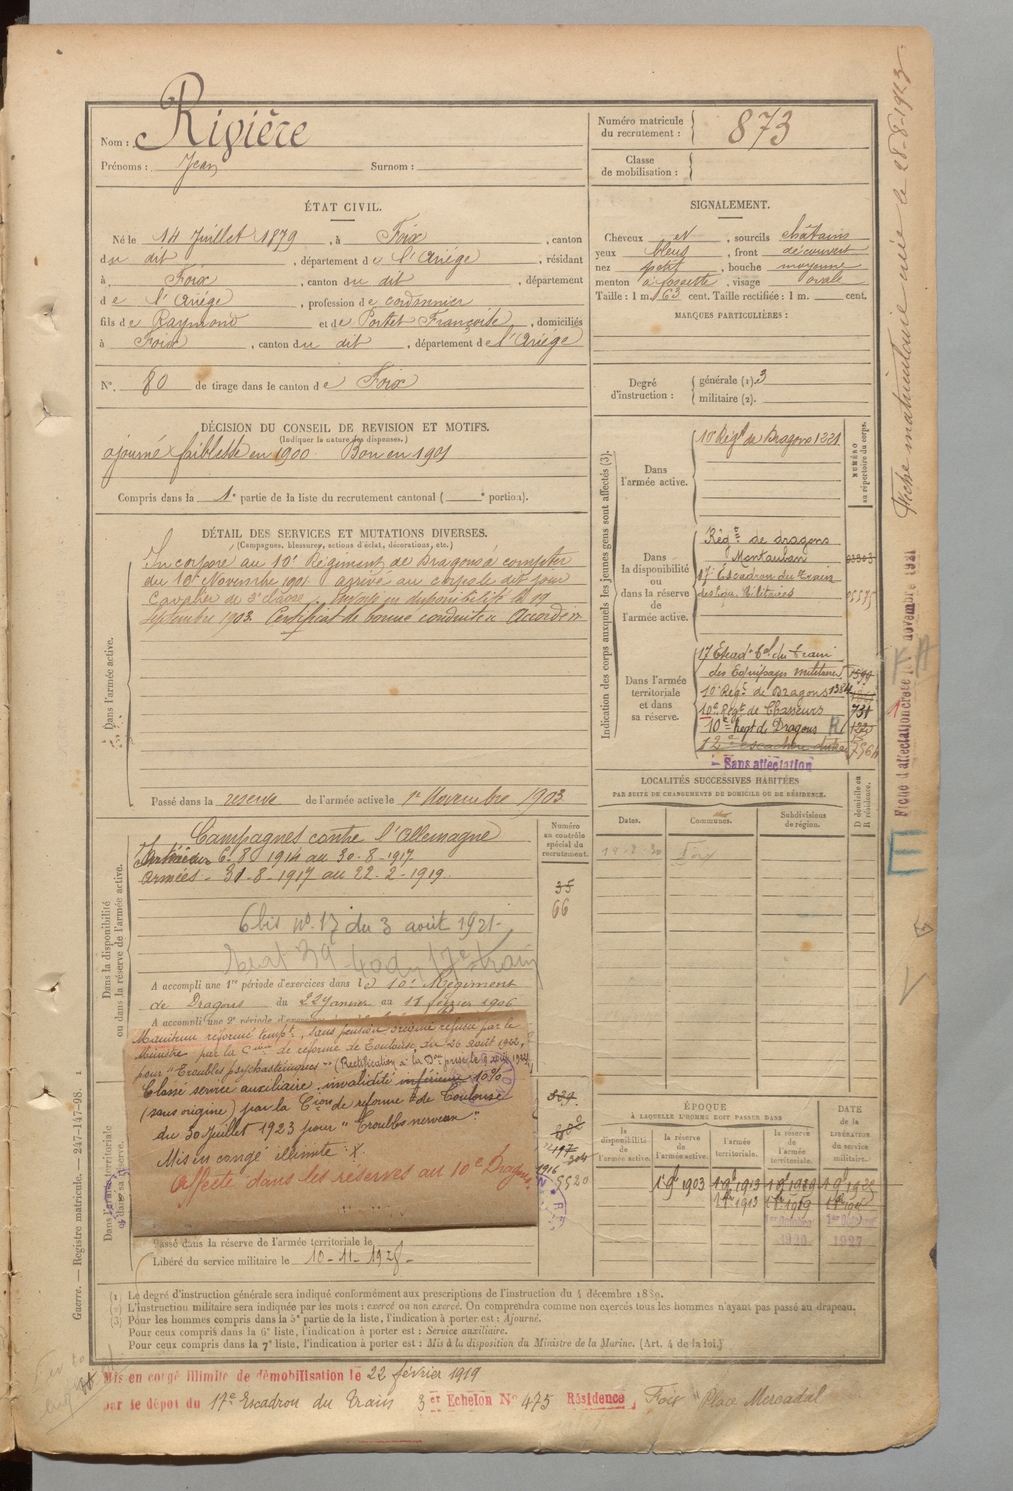 Nom : Rivière
Prénoms : Jean Surnom :
Numéro matricule du recrutement : 873
Classe de mobilisation :
ÉTAT CIVIL.
Né le 14 Juillet 1879, à Foix, canton
du dit, département de l'Ariège, résidant
à Foix, canton du dit, département
de l'Ariège, profession de cordonnier
fils de Raymond et de Portet Françoise, domiciliés
à Foix, canton du dit, département de l'Ariège
N° 80 de tirage dans le canton de Foix
SIGNALEMENT.
Cheveux et, sourcils châtains
yeux bleus, front découvert
nez petit, bouche moyenne
menton à fossette, visage ovale
Taille : 1 m. 63 cent. Taille rectifiée : 1 m. cent.
MARQUES PARTICULIÈRES :
Degré d'instruction : générale (1). 3
militaire (2).
DÉCISION DU CONSEIL DE REVISION ET MOTIFS.
(Indiquer la nature des dispenses.)
ajourné faiblesse en 1900. Bon en 1901
Compris dans la 1e partie de la liste du recrutement cantonal ( e portion).
DÉTAIL DES SERVICES ET MUTATIONS DIVERSES.
(Campagnes, blessures, actions d'éclat, décorations, etc.)
Dans l'armée active.
Incorporé au 10e Régiment de Dragons à compter
du 16 Novembre 1901 arrivé au corps le dit jour
Cavalier de 2e classe. Envoyé en disponibilité le 19
septembre 1903. Certificat de bonne conduite Accordé
Passé dans la réserve de l'armée active le 1er Novembre 1903
Indication des corps auxquels les jeunes gens sont affectés (3).
NUMÉRO au répertoire du corps.
Dans l'armée active.
10e Régt de Dragons 1221
Dans la disponibilité ou dans la réserve de l'armée active.
Régt de dragons
Montauban
17e Escadron du train
des Equip. Militaires
Dans l'armée territoriale et dans sa réserve.
17 Escadn tal du train
des Equipages militaires
10e Régt de Dragons 1384
10e Régt de Chasseurs 731
10e Regt de Dragons R
Sans affectation
LOCALITÉS SUCCESSIVES HABITÉES
PAR SUITE DE CHANGEMENTS DE DOMICILE OU DE RÉSIDENCE.
Dates. Communes. Subdivisions de région. D domicile ou R résidence.
19-2-20 Foix
Dans la disponibilité ou dans la réserve de l'armée active.
Numéro au contrôle spécial du recrutement.
Campagnes contre l'Allemagne
Intérieur 6-8 1914 au 30-8-1917
Armées - 31-8-1917 au 22-2-1919.
35
66
6 bis n° 17 du 3 août 1921-
A accompli une 1re période d'exercices dans le 10e Régiment
de Dragons du 22 Janvier au 11 février 1906
A accompli une 2e période d'exercices
Maintenu réformé tempre, sans pension
Ministre par la Cion de réforme de Toulouse, du 26 août 1922,
pour "Troubles psychasténiques"
Classé service auxiliaire, invalidité inférieure 10%
(sans origine) par la Cion de réforme de Toulouse
du 30 juillet 1923 pour "Troubles nerveux"
Mis en congé illimité
Affecté dans les réserves au 10e Dragons.
Dans l'armée territoriale
5520
Passé dans la réserve de l'armée territoriale le
Libéré du service militaire le 10-11-1928-
ÉPOQUE
À LAQUELLE L'HOMME DOIT PASSER DANS
la disponibilité de l'armée active. la réserve de l'armée active. l'armée territoriale. la réserve de l'armée territoriale.
DATE de la LIBÉRATION du service militaire.
(1) Le degré d'instruction générale sera indiqué conformément aux prescriptions de l'instruction du 4 décembre 1889.
(2) L'instruction militaire sera indiquée par les mots : exercé ou non exercé. On comprendra comme non exercés tous les hommes n'ayant pas passé au drapeau.
(3) Pour les hommes compris dans la 5e partie de la liste, l'indication à porter est : Ajourné.
Pour ceux compris dans la 6e liste, l'indication à porter est : Service auxiliaire.
Pour ceux compris dans la 7e liste, l'indication à porter est : Mis à la disposition du Ministre de la Marine. (Art. 4 de la loi.)
Mis en congé illimité de démobilisation le 22 février 1919
par le dépôt du 17e Escadron du Train 3er Echelon N° 475 Résidence, Foix "Place Mercadal
Guerre. — Registre matricule. — 247-147-98.
Fiche matriculaire créée le 28-8-1923
Fiche d'affectation créée le novembre 1931